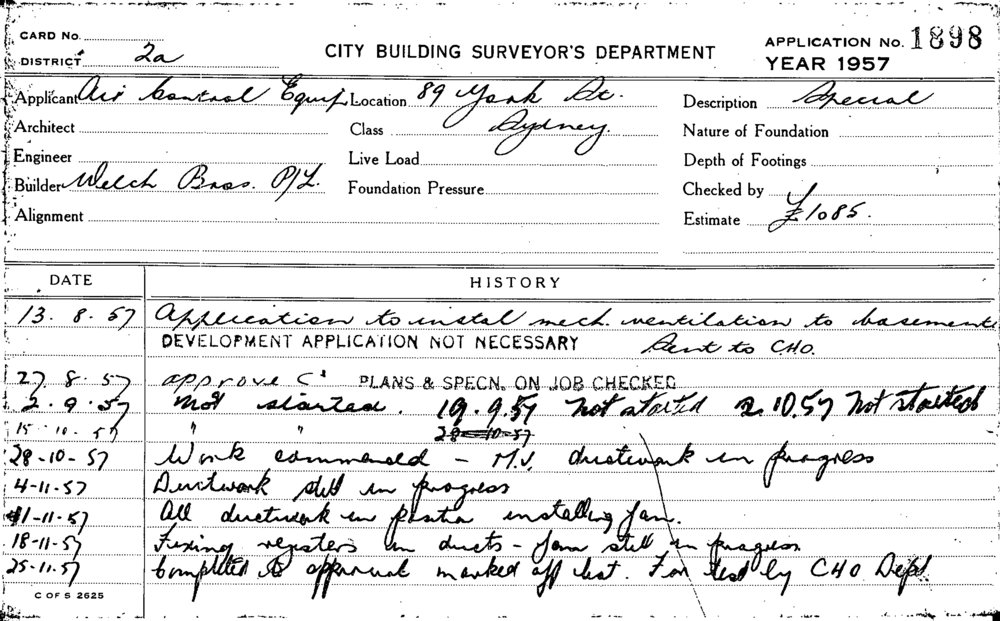 CARD No.
DISTRICT 2a
CITY BUILDING SURVEYOR'S DEPARTMENT
APPLICATION No. 1898
YEAR 1957
Applicant Air Control Equip. Location 89 York St. Description Special
Architect Class Sydney. Nature of Foundation
Engineer Live Load Depth of Footings
Builder Welch Bros. P/L. Foundation Pressure Checked by
Alignment Estimate £1085.
DATE HISTORY
13. 8. 57 Application to instal mech. ventilation to basement
DEVELOPMENT APPLICATION NOT NECESSARY Sent to C.H.O.
27. 8. 57 approve PLANS & SPECN. ON JOB CHECKED
2. 9. 57 Not started. 19.9.57 Not started 2.10.57 Not started
15. 10. 57 " " 28-10-57
28-10-57 Work commenced - M.V. ductwork in progress
4-11-57 Ductwork still in progress
11-11-57 All ductwork in positn installing fan.
18-11-57 Fixing registers in ducts - fan still in progress
25-11-57 Completed to approval marked off list. For test by CHO Dept.
C OF S 2625